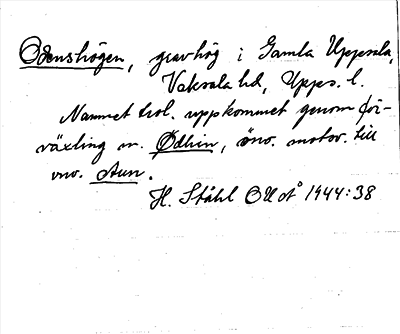 Odenshögen, gravhög i Gamla Uppsala,
Vaksala hd, Upps. l.
Namnet trol. uppkommet genom för-
växling m. Ødhin, öno. motsv. till
vno. Aun.
H. Ståhl OUÅ 1944:38